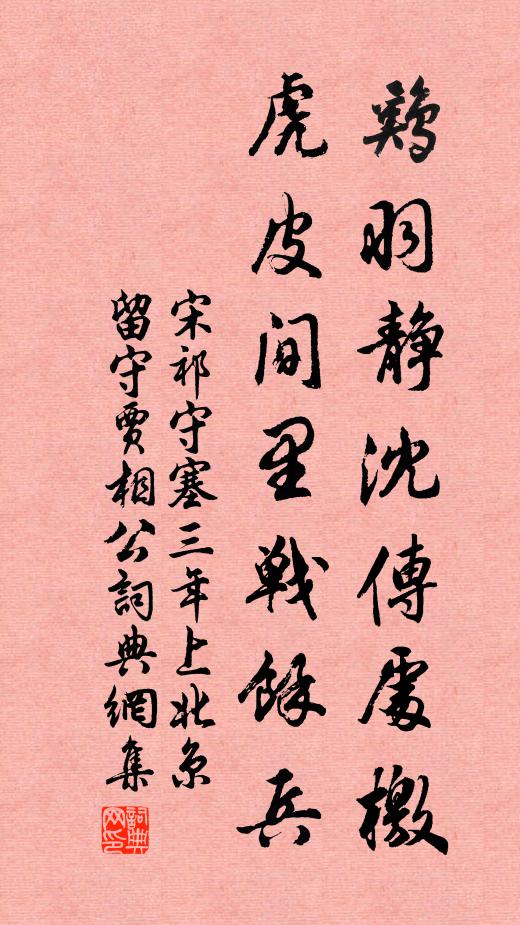 鷄羽静沈傳處檄
虎皮間里戰餘兵
宋祁守塞三年上北京
留守賈相公詞典網集
詞典网印